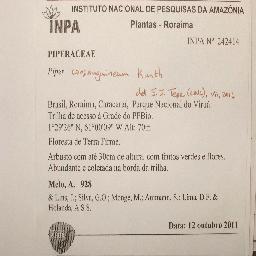 INSTITUTO NACIONAL DE PESQUISAS DA AMAZÔNIA
INPA
Plantas - Roraima
INPA Nº 242414
PIPERACEAE
Piper consanguineum Kunth
det. E.F.
Brasil, Roraima, Caracaraí, Parque Nacional do Viruá.
Trilha de acesso à Grade do PPBio.
1°29'26" N, 61°00'09" W Alt: 70m
Floresta de Terra Firme.
Arbusto com até 30cm de altura, com frutos verdes e flores.
Abundante e coletada na borda da trilha.
Melo, A. 928
& Lins, I.; Silva, G.O.; Menge, M.; Aumann, S.; Lima, D.F. &
Holanda, A.S.S.
Data: 12 outubro 2011